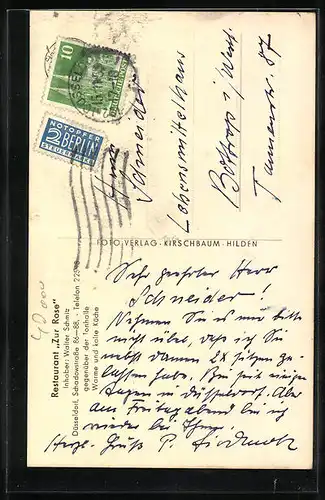 10
NOTOPFER
2 BERLIN
STEUERMARKE
Schneider
Lebensmittelhaus
Bottrop i/Westf.
Tannenstr. 87
FOTO-VERLAG · KIRSCHBAUM · HILDEN
Restaurant „Zur Rose"
Inhaber: Walter Schmitz
Düsseldorf, Schadowstraße 86—88, · Telefon
gegenüber der Tonhalle
Warme und kalte Küche
Sehr geehrter Herr
Schneider!
Nehmen Sie es mir bitte
nicht übel, dass ich Sie
2x sitzen ge-
lassen habe. Bin seit einigen
Tagen in Düsseldorf. Aber
am Freitagabend bin ich
wieder bei Ihnen.
Herzl. Gruß P.